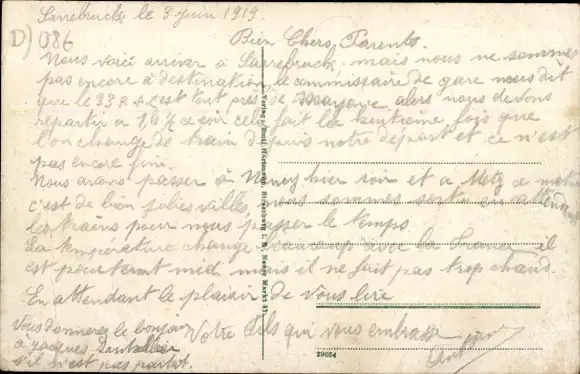 Sarrebruck le 3 juin 1919.
D) 086
Bien Chers Parents.
Nous voici arriver a Sarrebruck, mais nous ne sommes
pas encore a destination, le commissaire de gare nous dit
que le 33 R.A.C est tout près de Mayence alors nous devons
repartir a ce soir cela fait la fois que
l'on change de train depuis notre départ et ce n'est
pas encore fini.
Nous avons passer à Nancy hier soir et a Metz ce matin
c'est de bien jolies villes, nous sommes sortis en attendant
les trains pour nous passer le temps.
La température change beaucoup avec la France il
est pourtant midi mais il ne fait pas trop chaud.
En attendant le plaisir de vous lire
Votre fils qui vous embrasse
Vous donnerez le bonjour
a Jacques
s'il n'est pas partit.
Verlag: Emil Hartmann, Strassburg i. E. Neuer Markt
29054